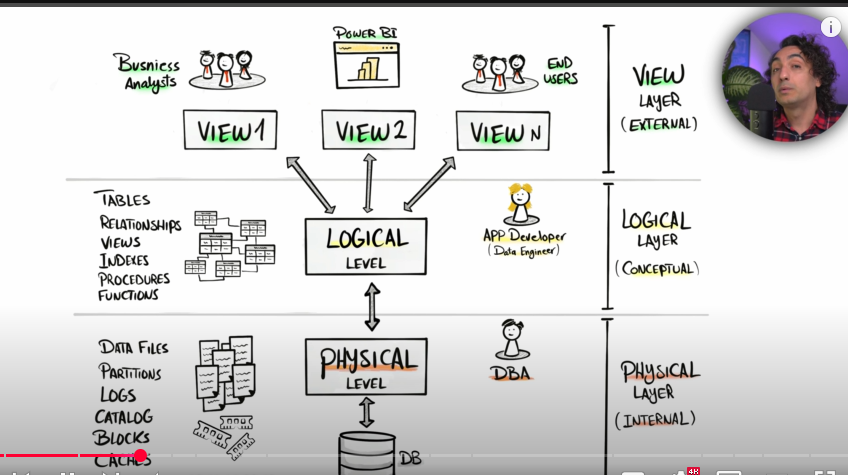 POWER BI
Busniess
Analysts
END
USERS
VIEW 1
VIEW 2
VIEW N
VIEW
LAYER
(EXTERNAL)
TABLES
RELATIONSHIPS
VIEWS
INDEXES
PROCEDURES
FUNCTIONS
LOGICAL
LEVEL
APP Developer
(Data Engineer)
LOGICAL
LAYER
(CONCEPTUAL)
DATA FILES
PARTITIONS
LOGS
CATALOG
BLOCKS
CACHES
PHYSICAL
LEVEL
DBA
DB
PHYSICAL
LAYER
(INTERNAL)
i
4K